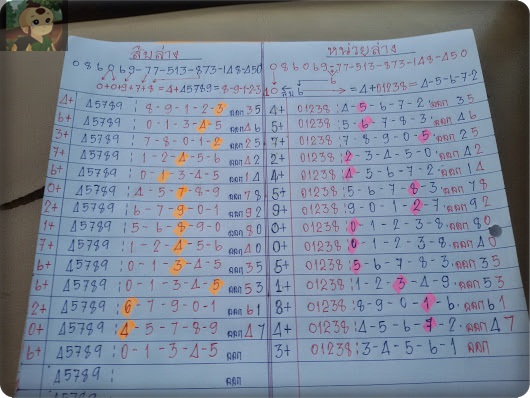 สิบล่าง
หน่วยล่าง
4+ 45789 : 8-9-1-2-3 ออก 35
5+ 45789 : 0-1-3-4-5 ออก 46
3+ 45789 : 7-8-0-1-2 ออก 25
7+ 45789 : 1-2-4-5-6 ออก 42
6+ 45789 : 0-1-3-4-5 ออก 14
0+ 45789 : 4-5-7-8-9 ออก 78
2+ 45789 : 6-7-9-0-1 ออก 92
1+ 45789 : 5-6-8-9-0 ออก 80
7+ 45789 : 1-2-4-5-6 ออก 40
6+ 45789 : 0-1-3-4-5 ออก 35
6+ 45789 : 0-1-3-4-5 ออก 53
2+ 45789 : 6-7-9-0-1 ออก 61
0+ 45789 : 4-5-7-8-9 ออก 47
6+ 45789 : 0-1-3-4-5 ออก
45789 : ออก
ออก
4+ 01238 : 4-5-6-7-2 ออก 35
5+ 01238 : 5-6-7-8-3 ออก 46
7+ 01238 : 7-8-9-0-5 ออก 25
2+ 01238 : 2-3-4-5-0 ออก 42
4+ 01238 : 4-5-6-7-2 ออก 14
5+ 01238 : 5-6-7-8-3 ออก 78
9+ 01238 : 9-0-1-2-7 ออก 92
0+ 01238 : 0-1-2-3-8 ออก 80
0+ 01238 : 0-1-2-3-8 ออก 40
5+ 01238 : 5-6-7-8-3 ออก 35
1+ 01238 : 1-2-3-4-9 ออก 53
8+ 01238 : 8-9-0-1-6 ออก 61
4+ 01238 : 4-5-6-7-2 ออก 47
3+ 01238 : 3-4-5-6-1 ออก